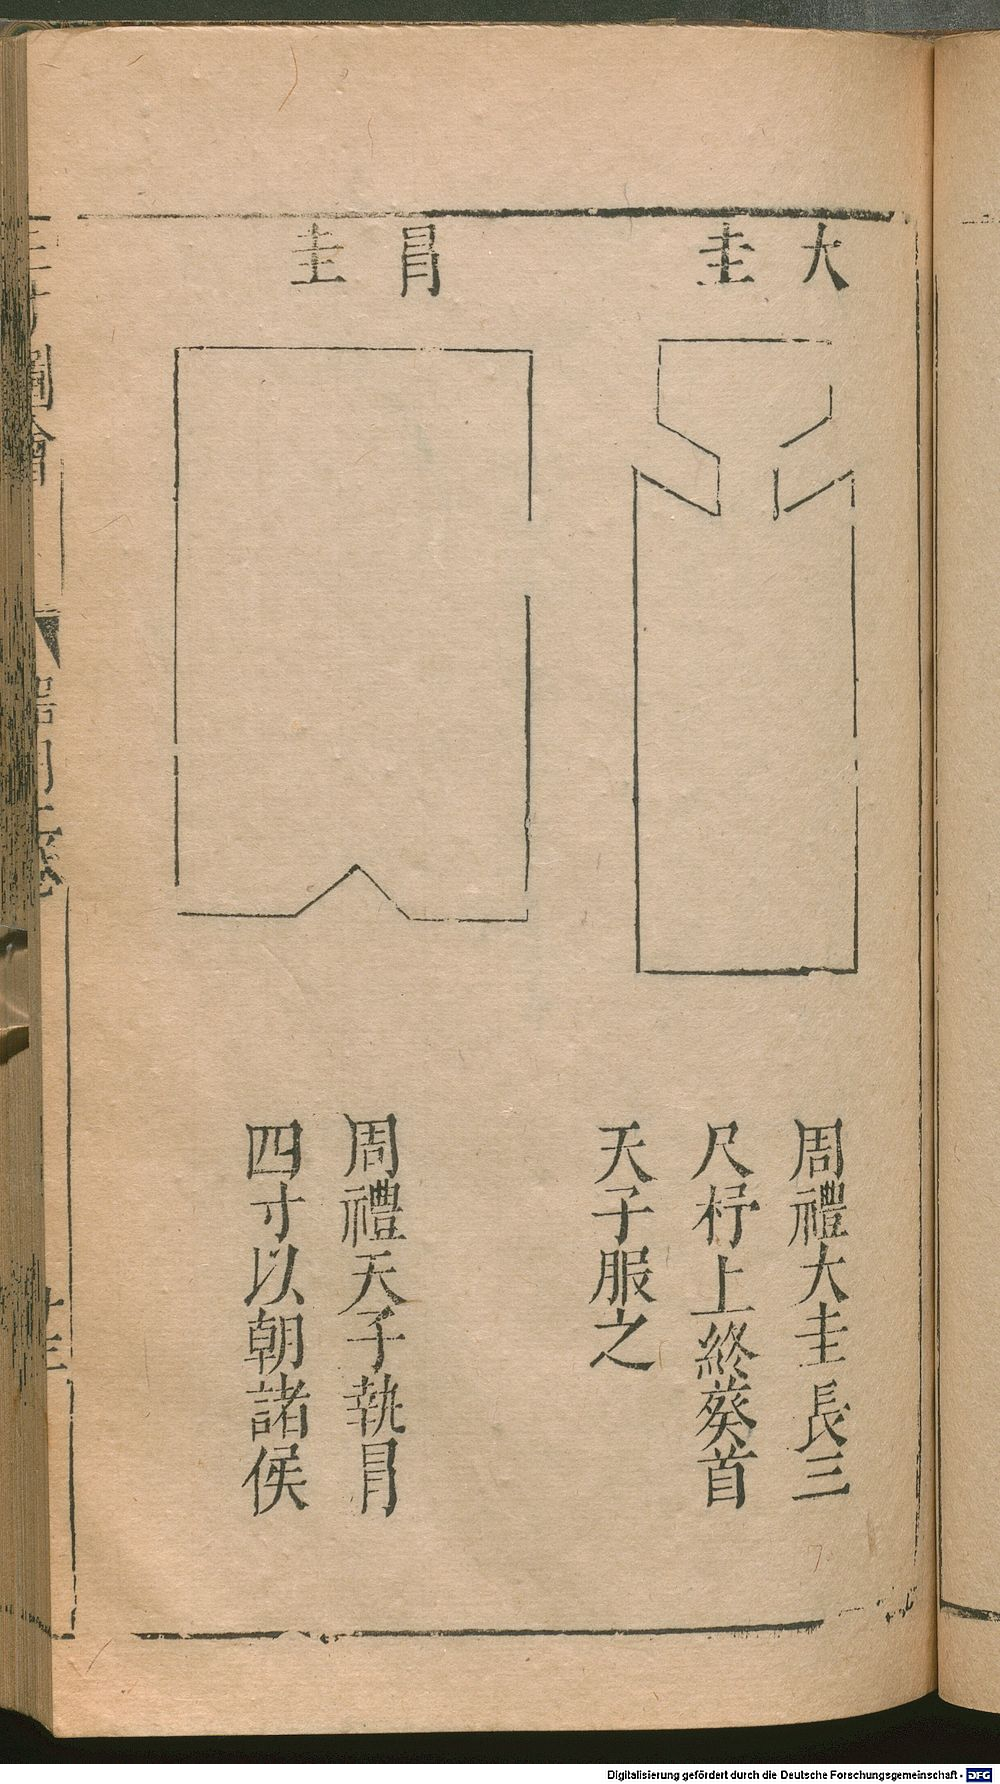 大圭
周禮大圭長三
尺杼上終葵首
天子服之
冐圭
周禮天子執冐
四寸以朝諸侯
圖會
Digitalisierung gefördert durch die Deutsche Forschungsgemeinschaft - DFG